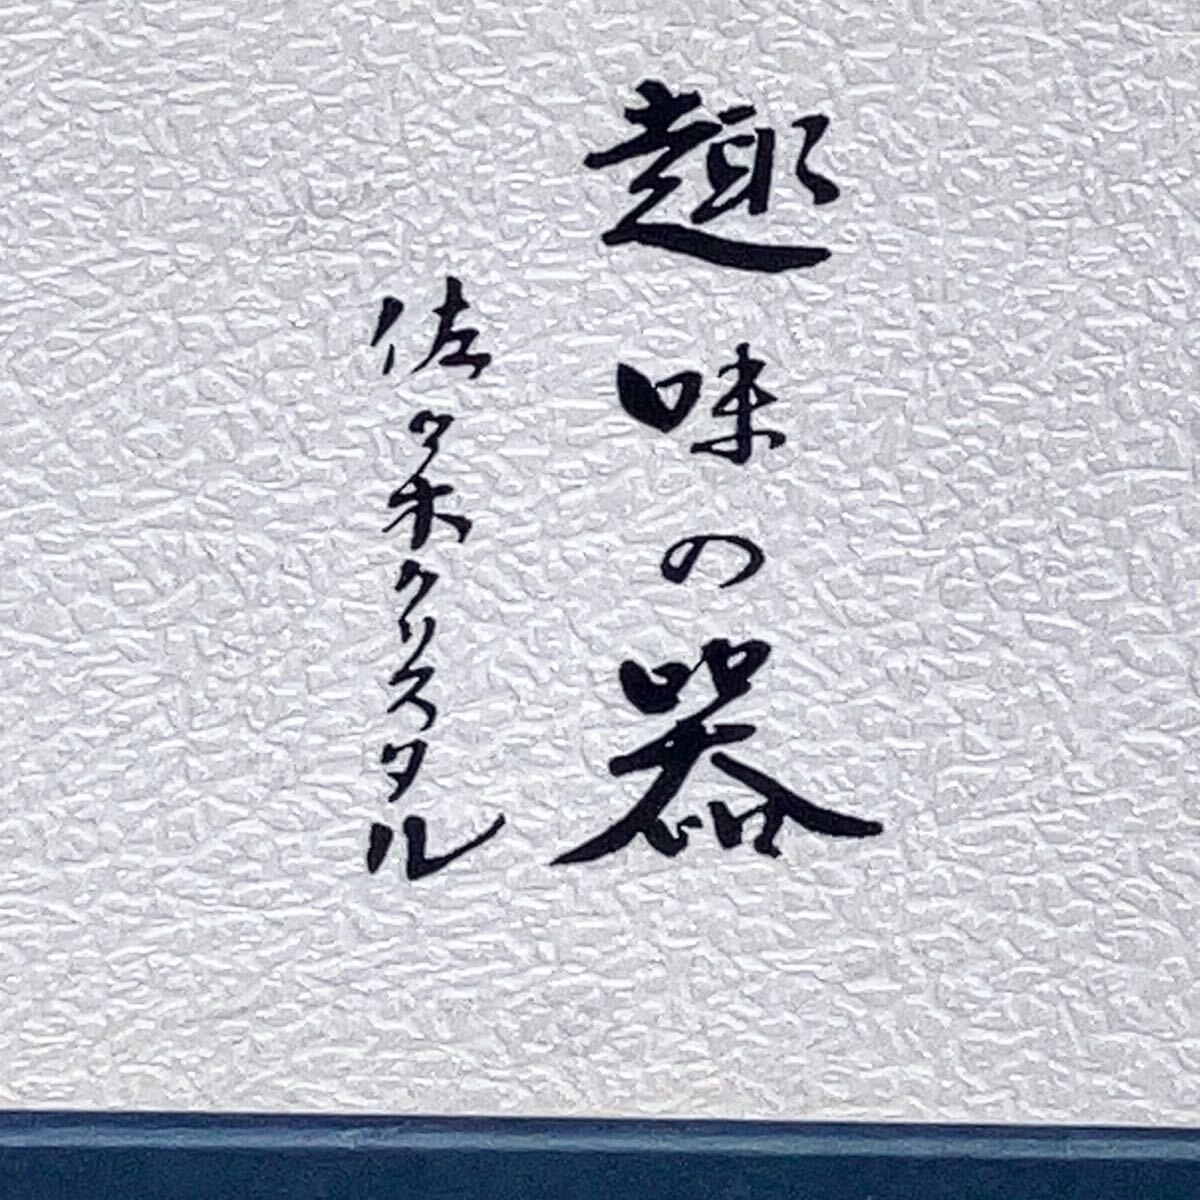 趣味の器
佐々木クリスタル